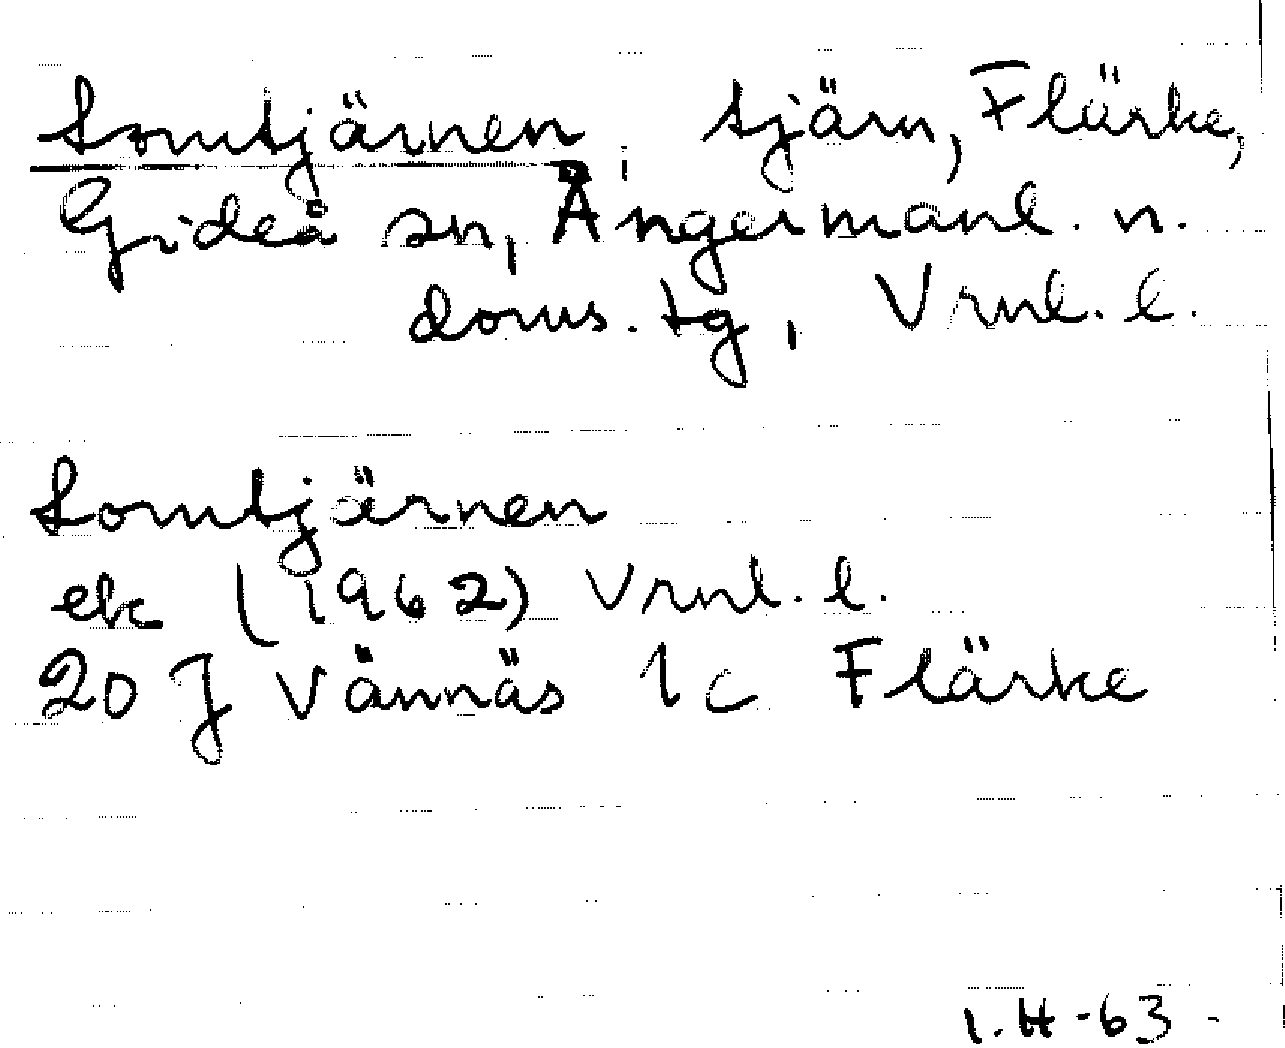 Lomtjärnen, tjärn, Flärke,
Gideå sn, Ångermanl. n.
doms. tg, Vrnl. l.
Lomtjärnen
ek (1962) Vrnl. l.
20 J Vännäs 1 c Flärke
I.H-63-